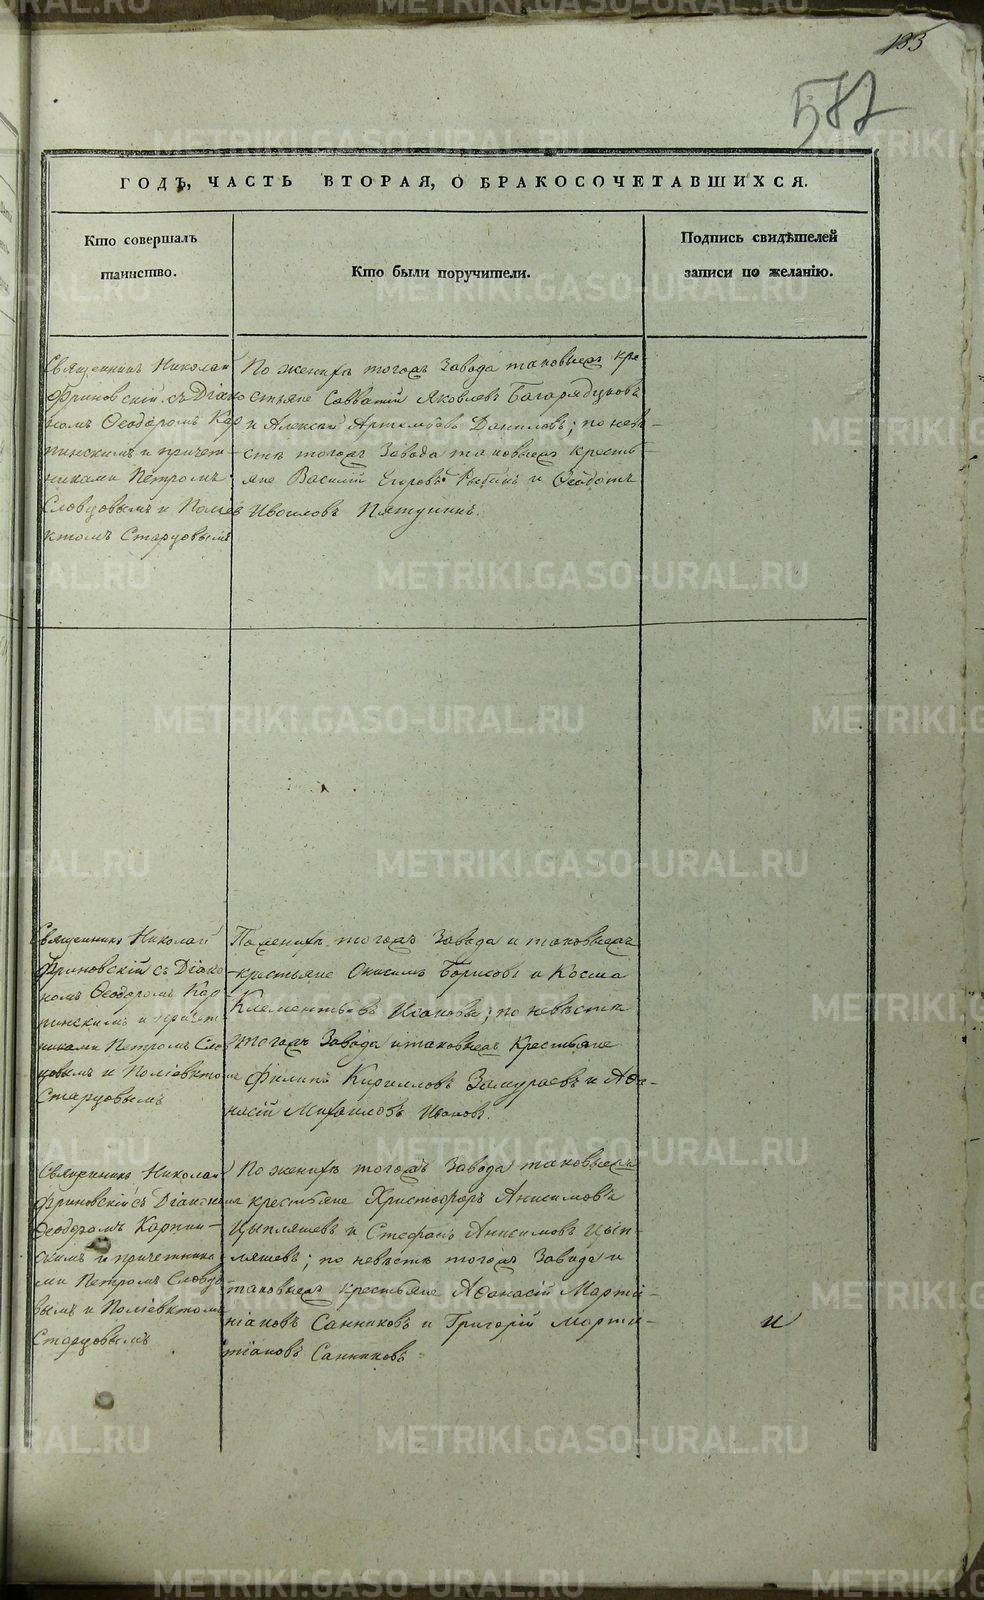 133
582
ГОДЪ, ЧАСТЬ ВТОРАЯ, О БРАКОСОЧЕТАВШИХСЯ.
Кто совершалъ
таинство.
Кто были поручители.
Подпись свидѣтелей
записи по желанію.
Священникъ Николай
Фриновскій съ Діако
номъ Ѳеодоромъ Кар
пинскимъ и причет-
никами Петромъ
Словцовымъ и Поліев
ктомъ Старцовымъ
По женихѣ тогожъ Завода таковыеж кре-
стьяне Савватій Яковлевъ Багарядцовъ
и Алексѣй Артемьевъ Даниловъ; по невѣ-
стѣ тогожъ Завода таковыеж кресть-
яне Василій Егоровъ Рыбинъ и Ѳеодотъ
Ивоиловъ Пятунинъ.
Священникъ Николай
Фриновскій съ Діако
номъ Ѳеодоромъ Кар-
пинскимъ и причет-
никами Петромъ Слов
цовымъ и Поліевктомъ
Старцовымъ
По женихѣ тогожъ Завода и таковыеж
крестьяне Онисимъ Борисовъ и Косма
Клементьевъ Исаковы; по невѣстѣ
тогожъ Завода и таковыеж Крестьяне
Филипъ Кирилловъ Замураевъ и Аѳа-
насій Михаиловъ Ивановъ.
Священникъ Николай
Фриновскій съ Діакономъ
Ѳеодоромъ Карпин-
скимъ и причетника
ми Петромъ Словцо
вымъ и Поліевктомъ
Старцовымъ
По женихѣ тогожъ Завода таковыеж
крестьяне Христофоръ Анисимовъ
Цыпляшевъ и Стефанъ Анисимовъ Цып-
ляшевъ; по невѣстѣ тогожъ Завода и
таковыеж крестьяне Аѳанасій Марти-
ніановъ Санниковъ и Григорій Марти-
ніановъ Санниковъ
и
METRIKI.GASO-URAL.RU